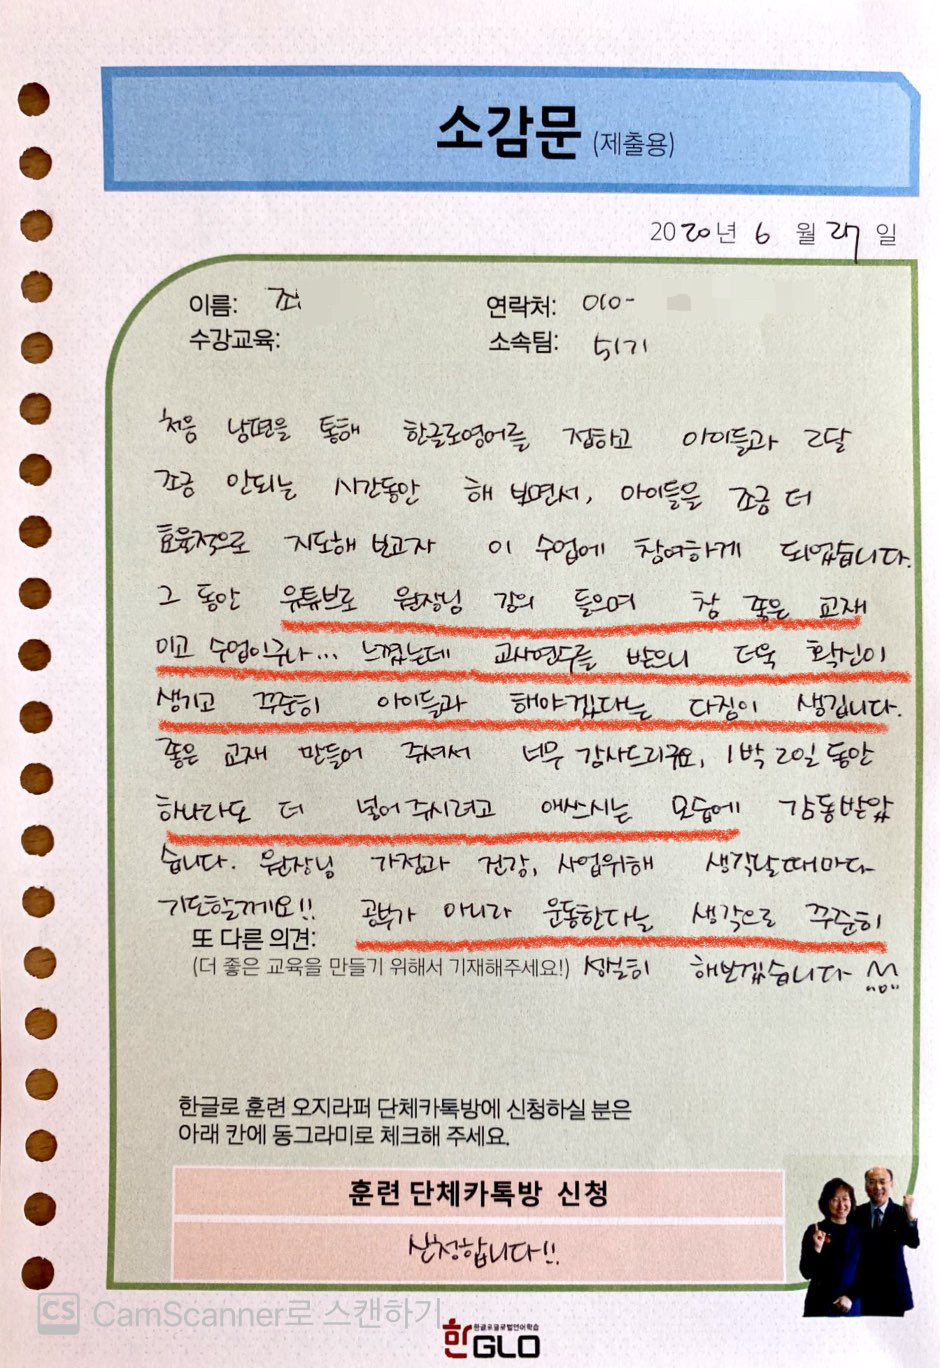 소감문 (제출용)
2020년 6월 27일
이름: 조
연락처: 010-
수강교육:
소속팀: 51기
처음 남편을 통해 한글로영어를 접하고 아이들과 2달
조금 안되는 시간동안 해 보면서, 아이들을 조금 더
효율적으로 지도해 보고자 이 수업에 참여하게 되었습니다.
그 동안 유튜브로 원장님 강의 들으며 참 좋은 교재
이고 수업이구나... 느꼈는데 교사연수를 받으니 더욱 확신이
생기고 꾸준히 아이들과 해야겠다는 다짐이 생깁니다.
좋은 교재 만들어 주셔서 너무 감사드리구요, 1박 2일 동안
하나라도 더 넣어 주시려고 애쓰시는 모습에 감동받았
습니다. 원장님 가정과 건강, 사업위해 생각날때마다
기도할께요!! 공부가 아니라 운동한다는 생각으로 꾸준히
또 다른 의견:
(더 좋은 교육을 만들기 위해서 기재해주세요!) 성실히 해보겠습니다
한글로 훈련 오지라퍼 단체카톡방에 신청하실 분은
아래 칸에 동그라미로 체크해 주세요.
훈련 단체카톡방 신청
신청합니다!!
CS CamScanner로 스캔하기
한글로글로벌언어학습
한GLO